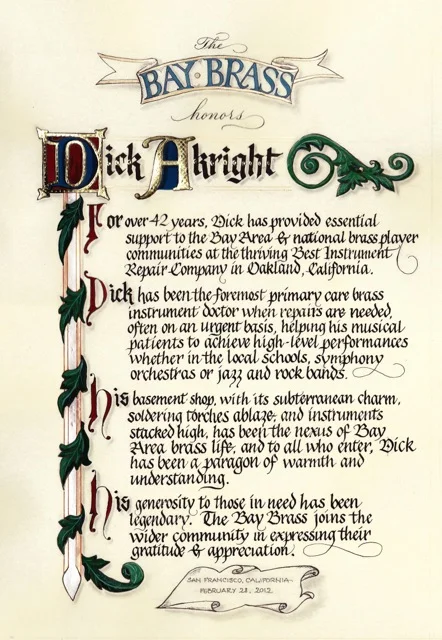 The
BAY·BRASS
honors
Dick Akright
For over 42 years, Dick has provided essential
support to the Bay Area & national brass player
communities at the thriving Best Instrument
Repair Company in Oakland, California.
Dick has been the foremost primary care brass
instrument doctor when repairs are needed,
often on an urgent basis, helping his musical
patients to achieve high-level performances
whether in the local schools, symphony
orchestras or jazz and rock bands.
His basement shop, with its subterranean charm,
soldering torches ablaze, and instruments
stacked high, has been the nexus of Bay
Area brass life, and to all who enter, Dick
has been a paragon of warmth and
understanding.
His generosity to those in need has been
legendary. The Bay Brass joins the
wider community in expressing their
gratitude & appreciation.
SAN FRANCISCO, CALIFORNIA
FEBRUARY 28, 2012